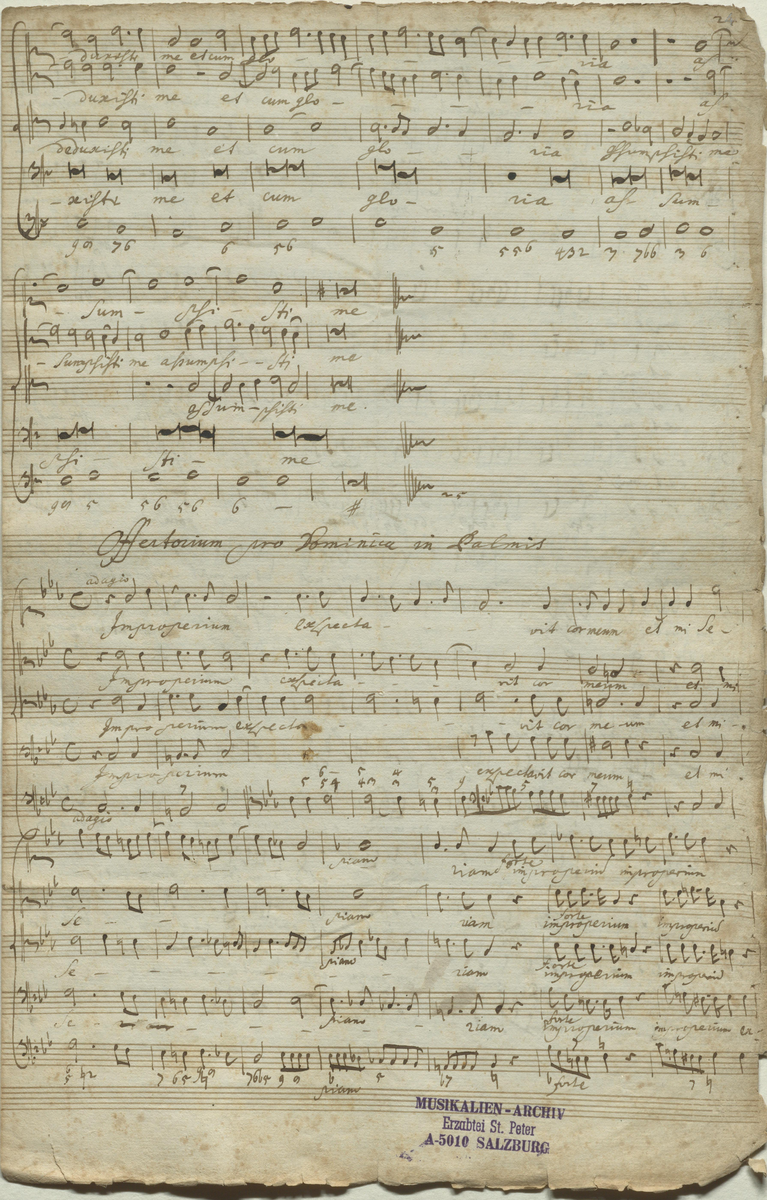 duxisti me et cum glo - - - ria as
- duxisti me et cum glo - - - - ria as
deduxisti me et cum glo - ria assumpsisti me
- xisti me et cum glo - ria as sum -
9 8 7 6 6 5 6 5 5 5 6 4 3 2 3 7 6 6 3 6
- Sum - psi - sti me
- sumpsisti me assumpsi - - sti me
assum - psisti me.
psi - sti - me
5 5 6 5 6 6 - #
Offertorium pro Dominica in Palmis
adagio
Improperium expecta - - - vit cor meum et mi se -
Improperium expecta - - - vit cor meum et mi
Improperium expecta - - - vit cor me - um et mi -
Improperium expectavit cor meum et mi
adagio
piano riam forte improperium improperium
se - - - piano riam forte improperium improperium
se - - - - piano - riam forte improperium improperium
se - - - piano - riam forte improperium improperium ex -
piano forte
MUSIKALIEN - ARCHIV
Erzabtei St. Peter
A-5010 SALZBURG